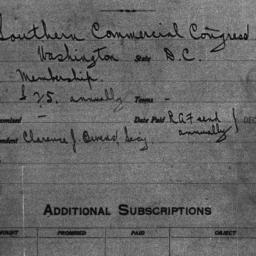 Southern Commercial Congress
Washington State D.C.
Membership.
$25. annually Terms -
omised - Date Paid RAF send
annually DEC
ondent Clarence J. Owens, Secy
ADDITIONAL SUBSCRIPTIONS
OUNT PROMISED PAID OBJECT